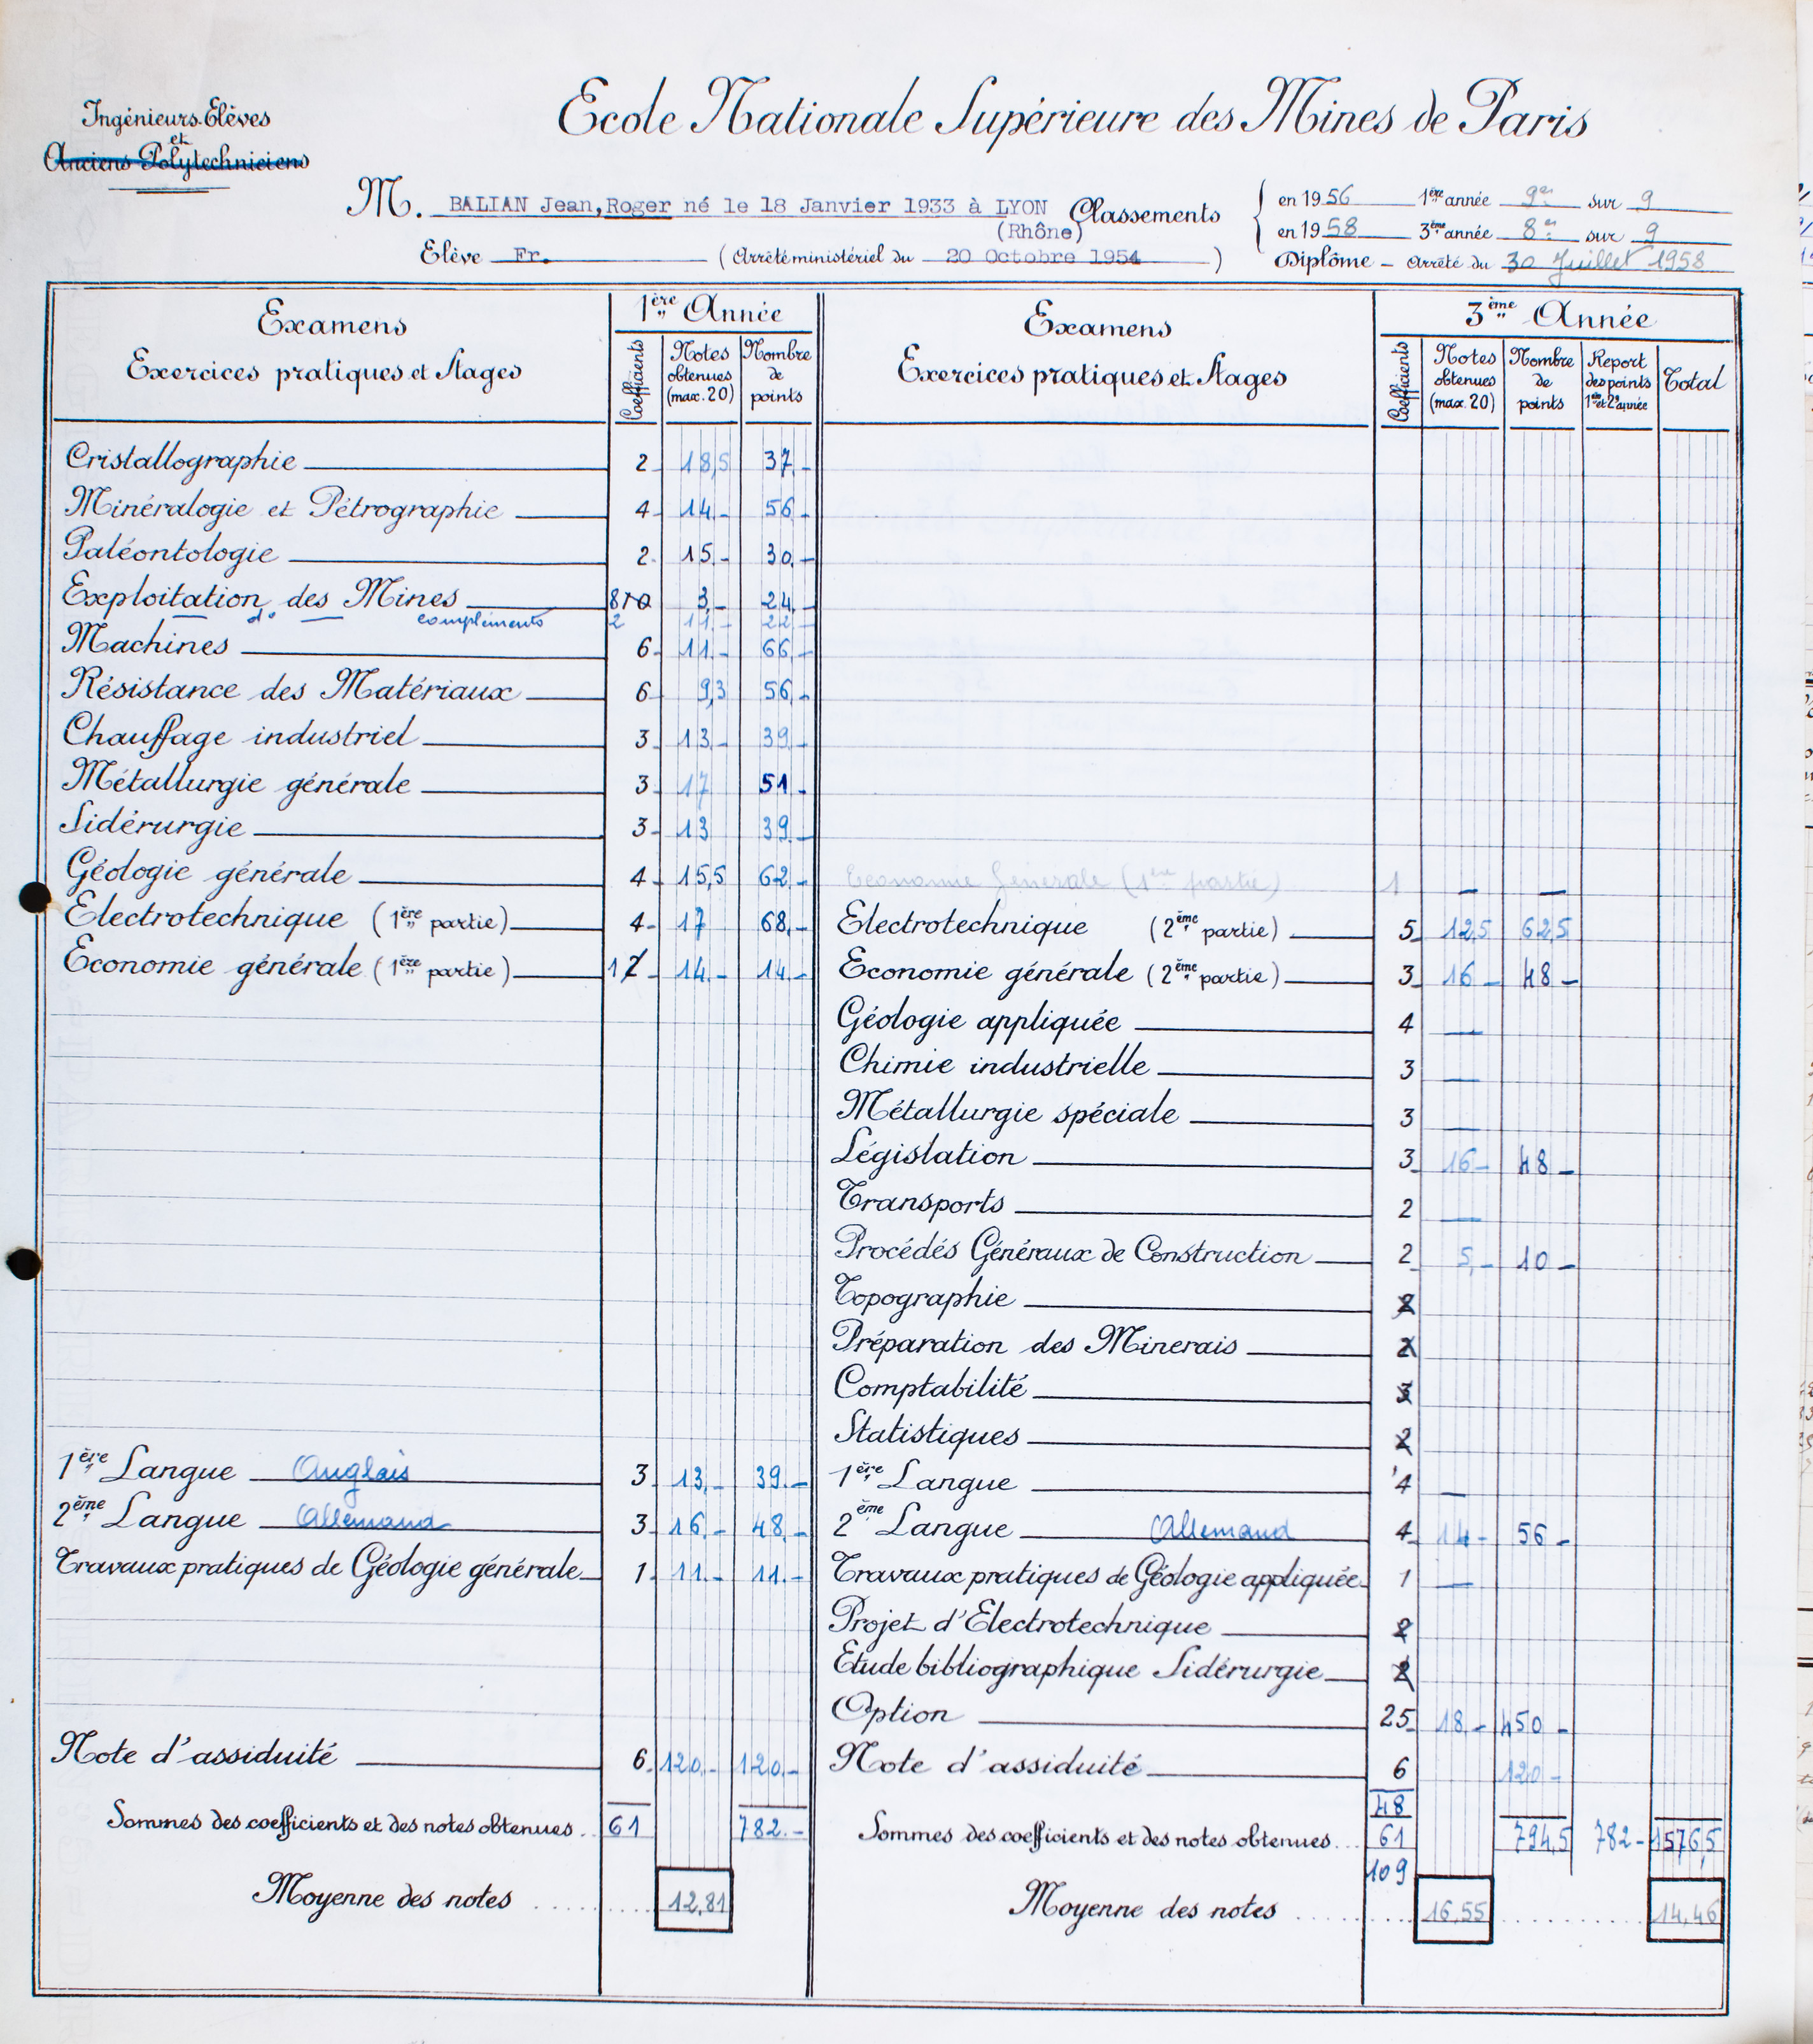 Ecole Nationale Supérieure des Mines de Paris
Ingénieurs-Elèves
et
Anciens Polytechniciens
M. BALIAN Jean,Roger né le 18 Janvier 1933 à LYON
(Rhône)
Classements
en 1956 1ère année 9e sur 9
en 1958 3ème année 8e sur 9
Elève Fr. (Arrêté ministériel du 20 Octobre 1954)
Diplôme - arrêté du 30 Juillet 1958
Examens
Exercices pratiques et Stages
1ère Année
Coefficients
Notes obtenues (max. 20)
Nombre de points
Cristallographie 2 18,5 37.-
Minéralogie et Pétrographie 4 14.- 56.-
Paléontologie 2 15.- 30.-
Exploitation des Mines 8 10 3,- 24.-
do compléments 2 11.- 22.-
Machines 6 11.- 66.-
Résistance des Matériaux 6 9,3 56.-
Chauffage industriel 3 13.- 39.-
Métallurgie générale 3 17 51.-
Sidérurgie 3 13 39.-
Géologie générale 4 15,5 62.-
Electrotechnique (1ère partie) 4 17 68.-
Economie générale (1ère partie) 1 2 14.- 14.-
1ère Langue Anglais 3 13.- 39.-
2ème Langue Allemand 3 16.- 48.-
Travaux pratiques de Géologie générale 1 11.- 11.-
Note d'assiduité 6 120.- 120.-
Sommes des coefficients et des notes obtenues .. 61 782.-
Moyenne des notes ........ 12,81
Examens
Exercices pratiques et Stages
3ème Année
Coefficients
Notes obtenues (max. 20)
Nombre de points
Report des points 1ère et 2e année
Total
Economie Générale (1ère partie) 1 — —
Electrotechnique (2ème partie) 5 12,5 62,5
Economie générale (2ème partie) 3 16 - 48 -
Géologie appliquée 4 —
Chimie industrielle 3 —
Métallurgie spéciale 3 —
Législation 3 16 - 48 -
Transports 2 —
Procédés Généraux de Construction 2 5,- 10 -
Topographie 2
Préparation des Minerais 2
Comptabilité 3
Statistiques 2
1ère Langue 4 —
2ème Langue Allemand 4 14 - 56 -
Travaux pratiques de Géologie appliquée 1 —
Projet d'Electrotechnique 2
Etude bibliographique Sidérurgie 2
Option 25 18.- 450 -
Note d'assiduité 6 120 -
48
Sommes des coefficients et des notes obtenues ... 61 794,5 782 - 1576,5
109
Moyenne des notes ........ 16,55 ........ 14,46